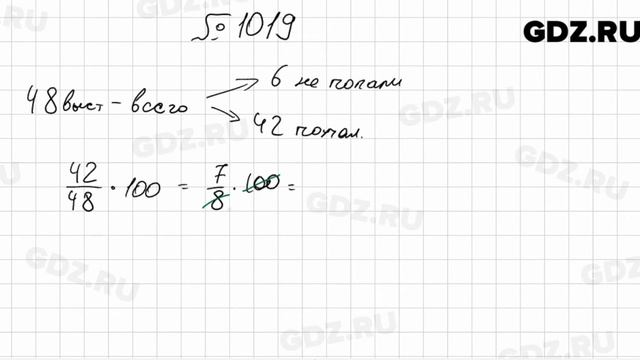 № 1019
GDZ.RU
48 выст - всего
6 не попали
42 попал.
42/48 · 100 = 7/8 · 100 =
GDZ.RU
GDZ.RU
GDZ.RU
GDZ.RU
GDZ.RU
GDZ.RU
GDZ.RU